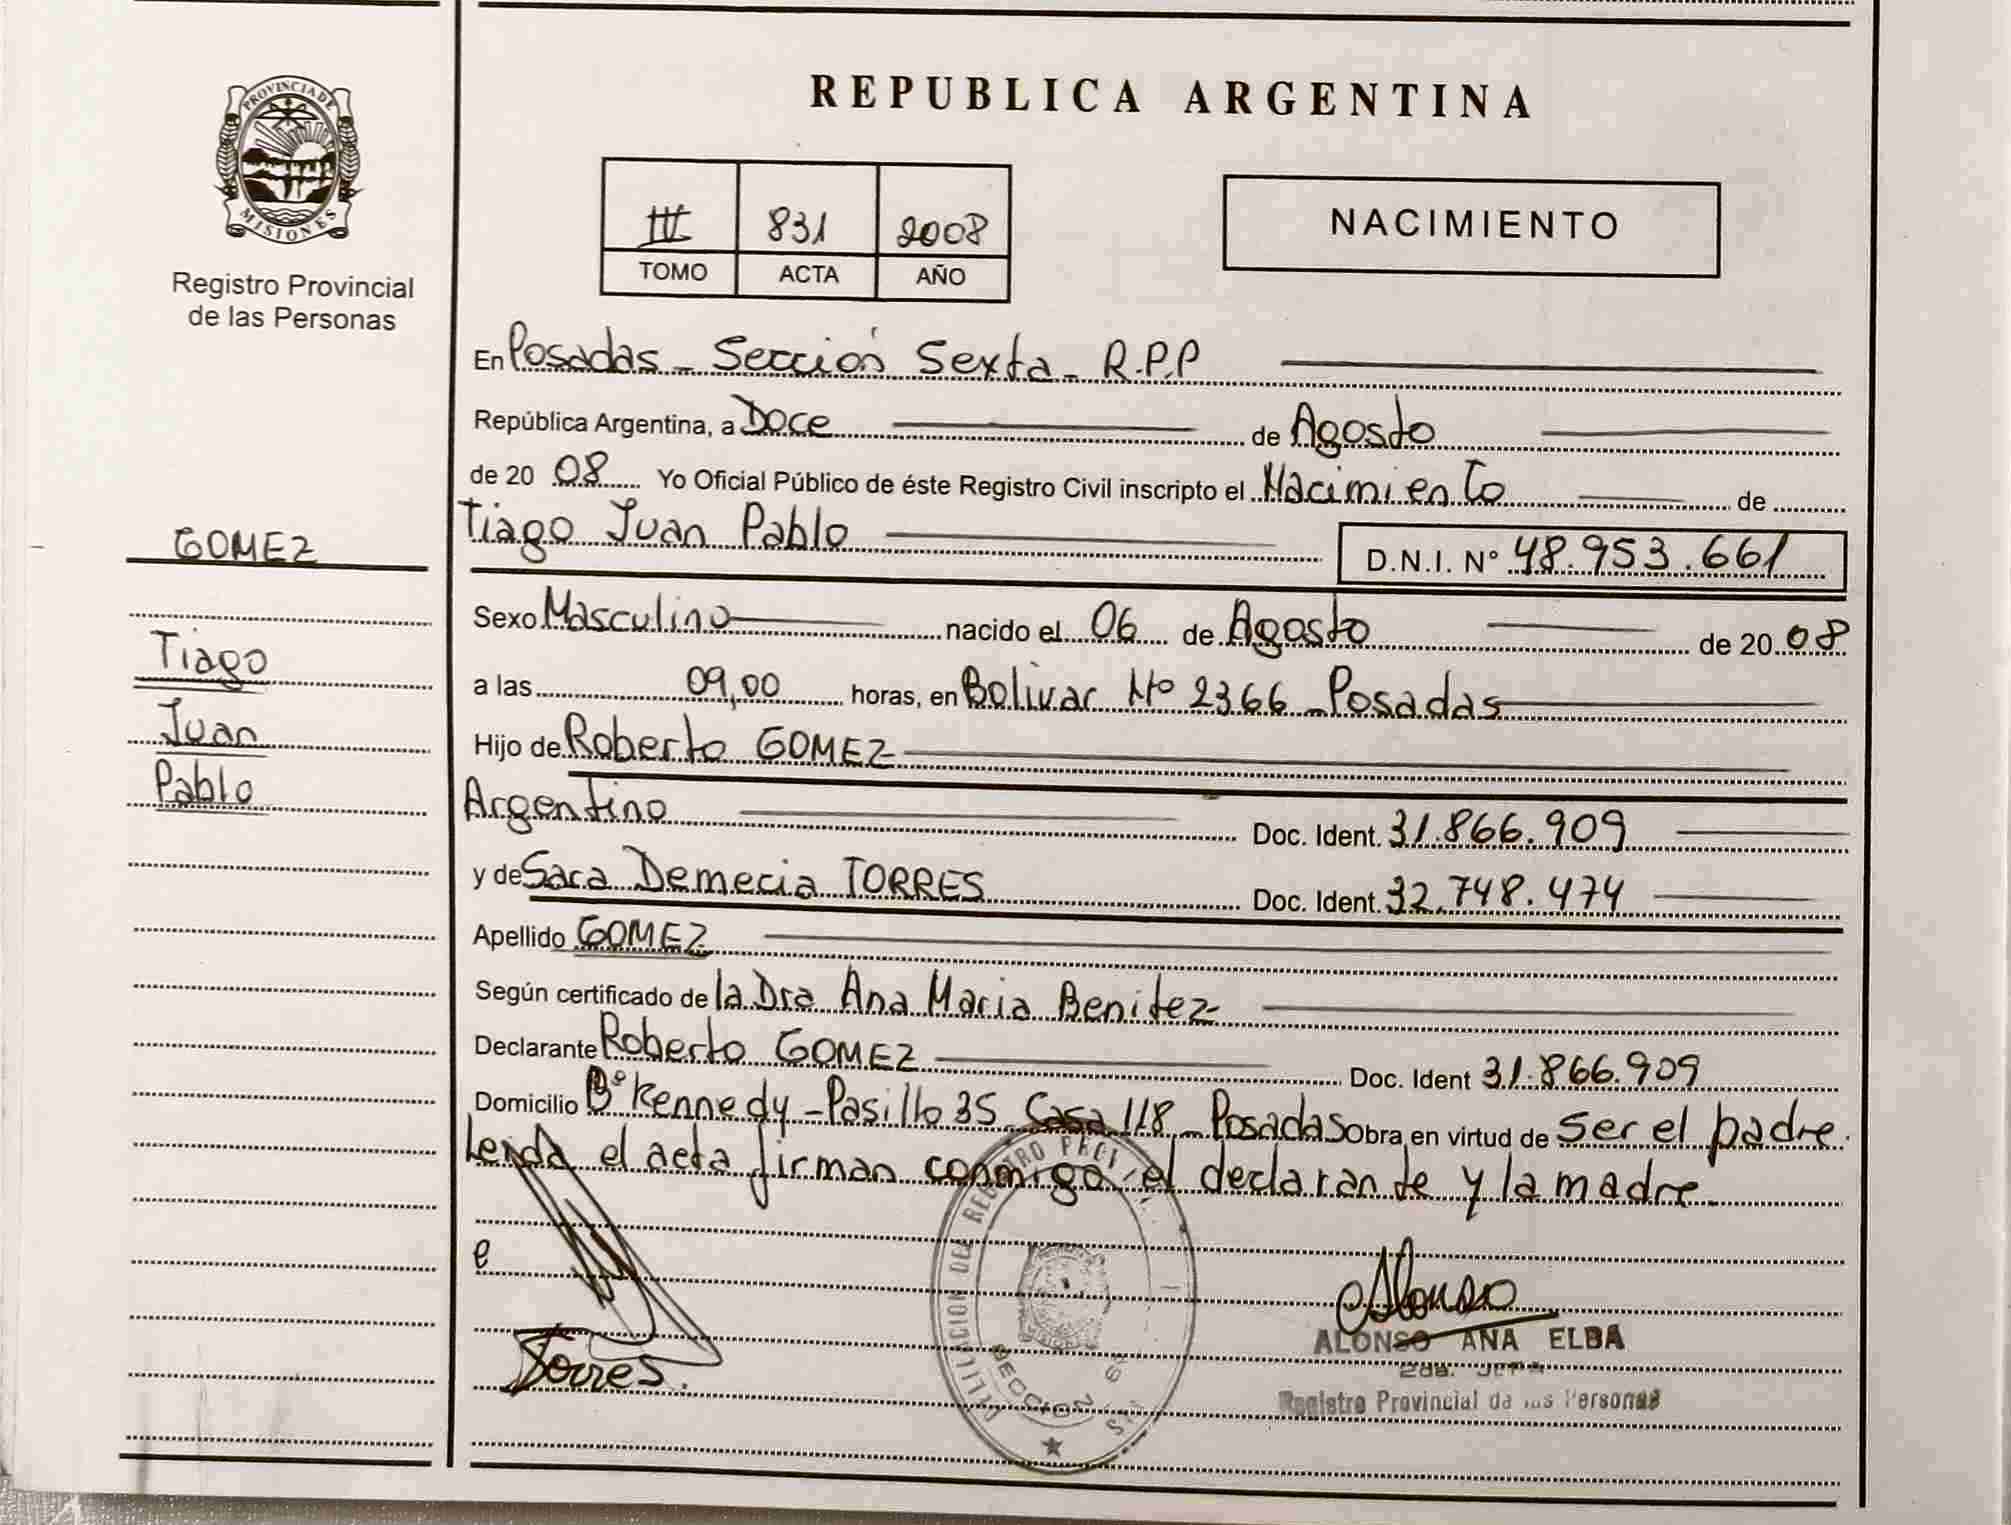 PROVINCIA DE
MISIONES
Registro Provincial
de las Personas
GOMEZ
Tiago
Juan
Pablo
REPUBLICA ARGENTINA
III 831 2008
TOMO ACTA AÑO
NACIMIENTO
En Posadas - Sección Sexta - R.P.P
República Argentina, a Doce de Agosto
de 20 08 Yo Oficial Público de éste Registro Civil inscripto el Nacimiento de
Tiago Juan Pablo D.N.I. Nº 48.953.661
Sexo Masculino nacido el 06 de Agosto de 20 08
a las 09,00 horas, en Bolivar Nº 2366 - Posadas
Hijo de Roberto GOMEZ
Argentino Doc. Ident. 31.866.909
y de Sara Demecia TORRES Doc. Ident. 32.748.474
Apellido GOMEZ
Según certificado de la Dra Ana Maria Benitez
Declarante Roberto GOMEZ Doc. Ident 31.866.909
Domicilio Bº Kennedy - Pasillo 35 Casa 118 - Posadas Obra en virtud de ser el padre.
Leída el acta firman conmigo, el declarante y la madre.
e
Torres.
REGISTRO PROV
SECCION 6º
Alonso
ALONSO ANA ELBA
2da. JEFA
Registro Provincial de las Personas